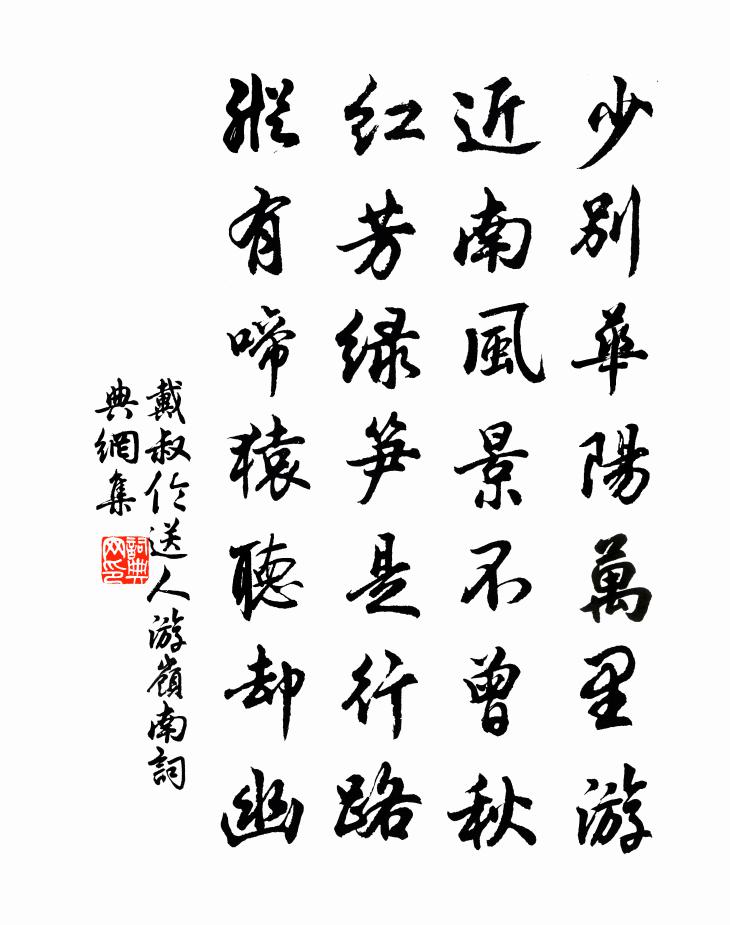 少別華陽萬里游
近南風景不曾秋
紅芳綠笋是行路
縱有啼猿聽却幽
戴叔伦送人游嶺南詞
典網集
詞典
网印